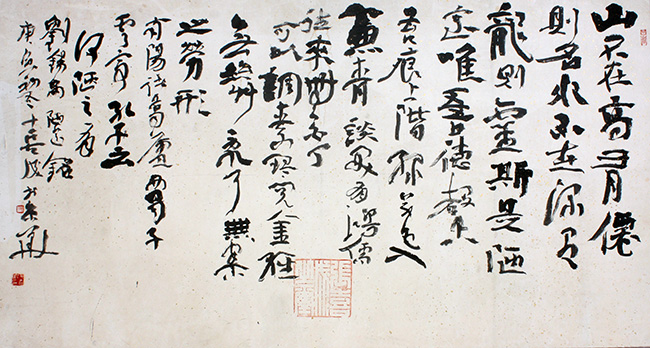 山不在高有僊
則名水不在深有
龍則靈斯是陋
室唯吾德馨
苔痕上階綠草色入
簾青談笑有鴻儒
往來無白丁
可以調素琴閱金經
無絲 無案
之勞形
南陽諸葛廬西蜀子
雲亭孔子云
何陋之有
劉錫禹陋室銘
庚寅初冬